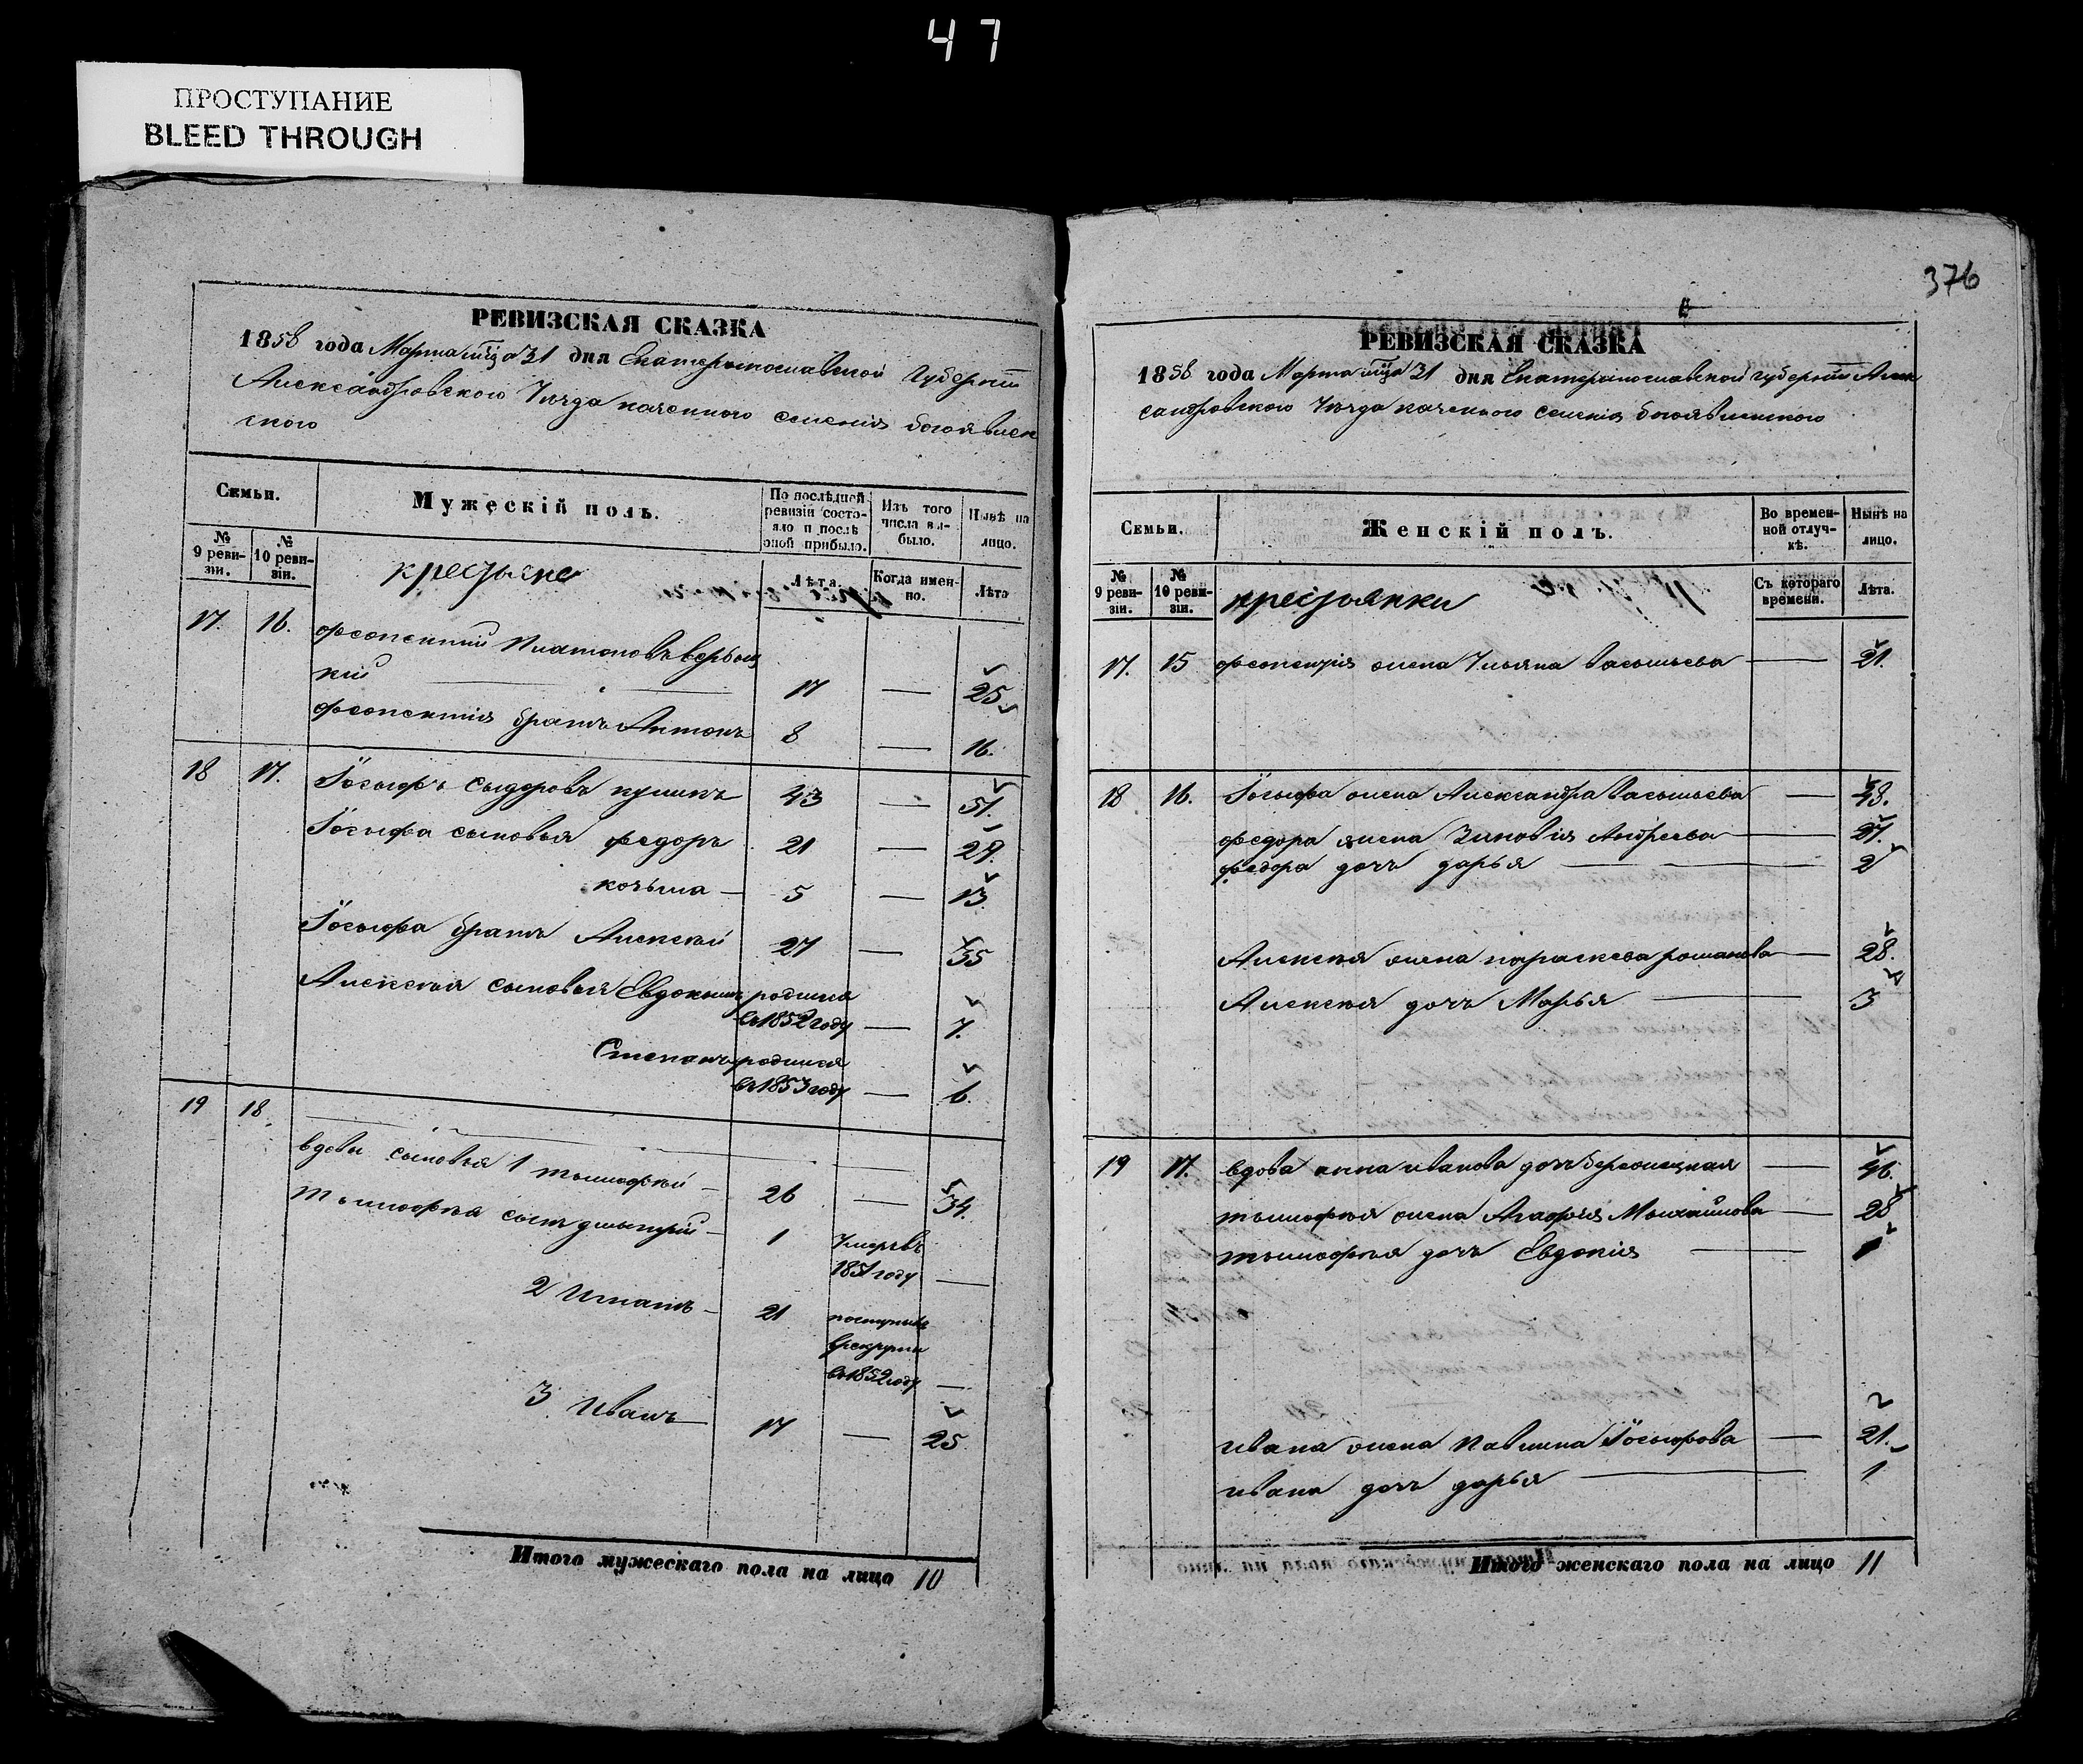 47
ПРОСТУПАНИЕ
BLEED THROUGH
РЕВИЗСКАЯ СКАЗКА
1858 года Марта мца 31 дня Екатеринославской Губернии
Александровского Уезда казенного селения богоявлен
ского
Семьи.
Мужескій полъ.
По послѣдней ревизіи состояло и послѣ оной прибыло.
Изъ того числа выбыло.
Нынѣ на лицо.
№ 9 ревизіи.
№ 10 ревизіи.
крестьяне
Лѣта.
Когда именно.
Лѣта
17. 16. феопентий Платоновъ
кий 17 — 25
феопентия братъ Антонъ 8 — 16.
18 17. Іосыфъ Сыдоровъ 43 — 51.
Іосыфа сыновья федоръ 21 — 29.
козьма — 5 — 13.
Іосыфа братъ Алексей 27 — 35
Алексея сыновья Евдокимъ родился
въ 1852 году — 7.
Степанъ родился
въ 1853 году — 6.
19 18.
вдовы сыновья 1 тымофей — 26 — 34.
тымофея сынъ дмытрий — 1 Умеръ въ
1851 году —
2 Игнатъ — 21 поступилъ
в рекруты
въ 1852 году —
3 Иванъ 17 — 25
Итого мужескаго пола на лицо 10
376
РЕВИЗСКАЯ СКАЗКА
1858 года Марта мца 31 дня Екатеринославской губернии Алек
сандровского Уезда казенного селения богоявленского
Семьи.
Женскій полъ.
Во временной отлучкѣ.
Нынѣ на лицо.
№ 9 ревизіи.
№ 10 ревизіи.
крестьянки
Съ котораго времени.
Лѣта.
17. 15 феопентия жена Ульяна васыльева — 21.
18 16. Іосыфа жена Александра васыльева — 48.
федора жена Зиновия Андреева — 27.
федора дочь дарья — 2
Алексея жена параскева романова — 28.
Алексея дочь Марья — 3
19 17. вдова анна иванова дочь — 46.
тымофея жена Агафия Мыхайлова — 28
тымофея дочь Евдокия — 1
ивана жена Павлина Іосыфова — 21.
ивана дочь дарья — 1
Итого женскаго пола на лицо 11